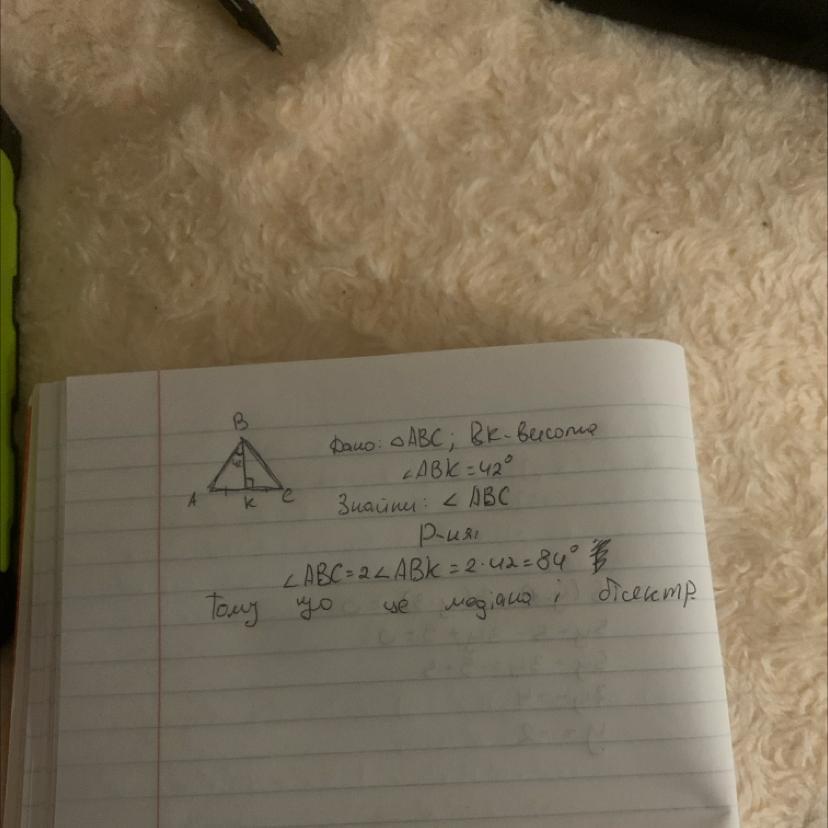 B
A
K
C
Дано: △ABC; BK-висота
∠ABK=42°
Знайти: ∠ABC
Р-ня:
∠ABC=2∠ABK=2·42=84°
Тому що це медіана і бісектр.